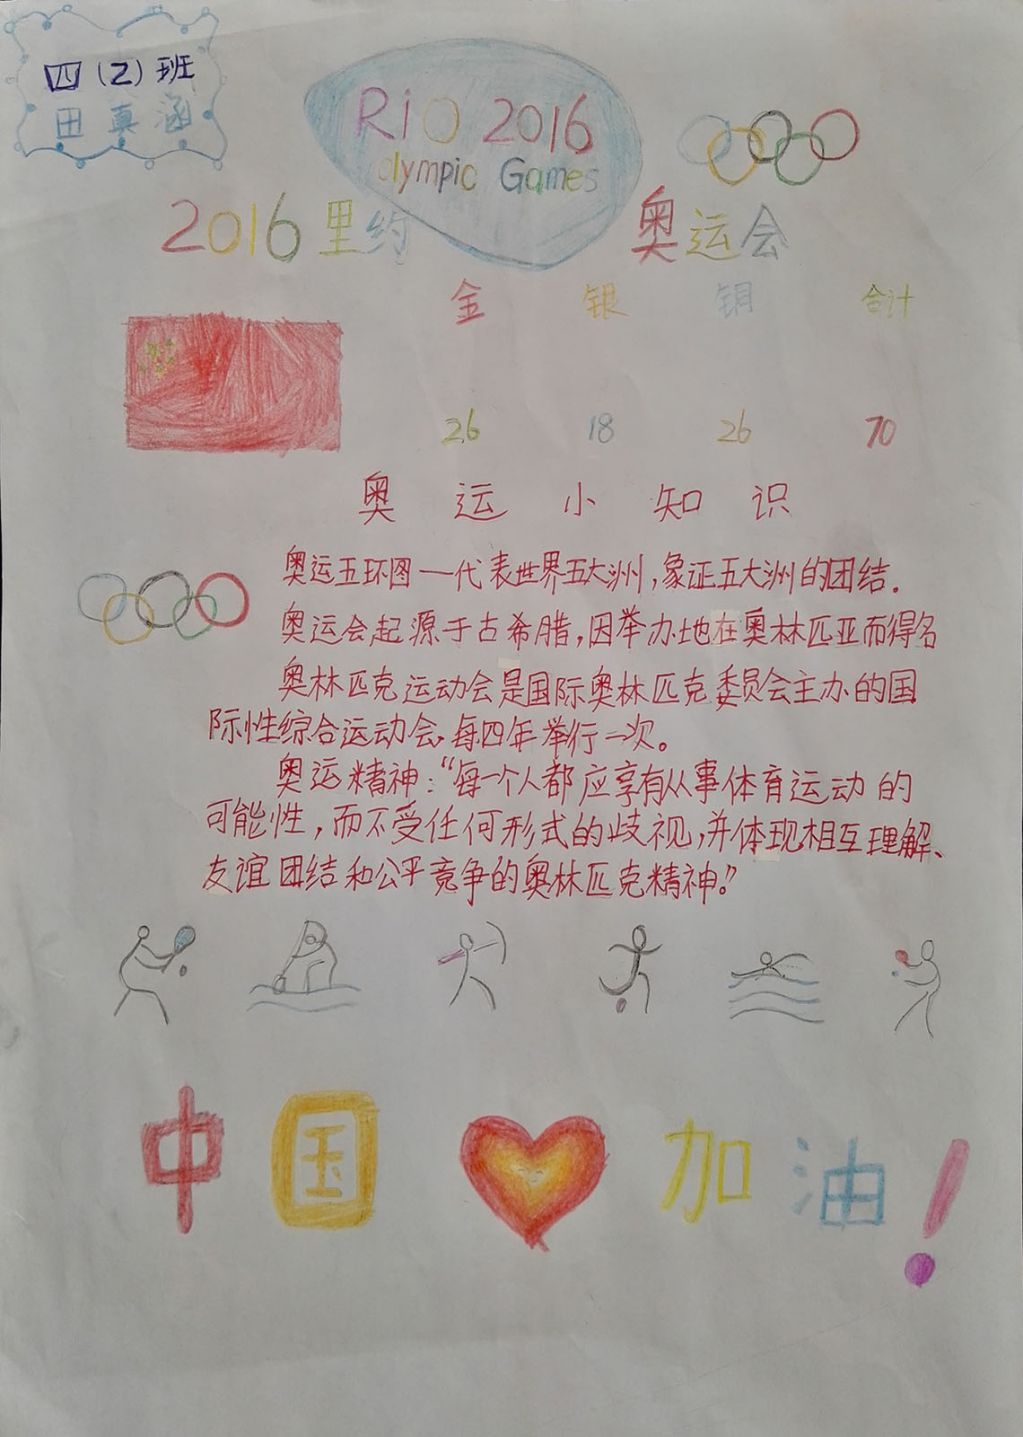 四(2)班
田真涵
RiO 2016
olympic Games
2016里约 奥运会
金 银 铜 合计
26 18 26 70
奥运小知识
奥运五环图一代表世界五大洲,象证五大洲的团结.
奥运会起源于古希腊,因举办地在奥林匹亚而得名
奥林匹克运动会是国际奥林匹克委员会主办的国
际性综合运动会,每四年举行一次。
奥运精神:“每一个人都应享有从事体育运动的
可能性,而不受任何形式的歧视,并体现相互理解、
友谊团结和公平竞争的奥林匹克精神。”
中国 加油!